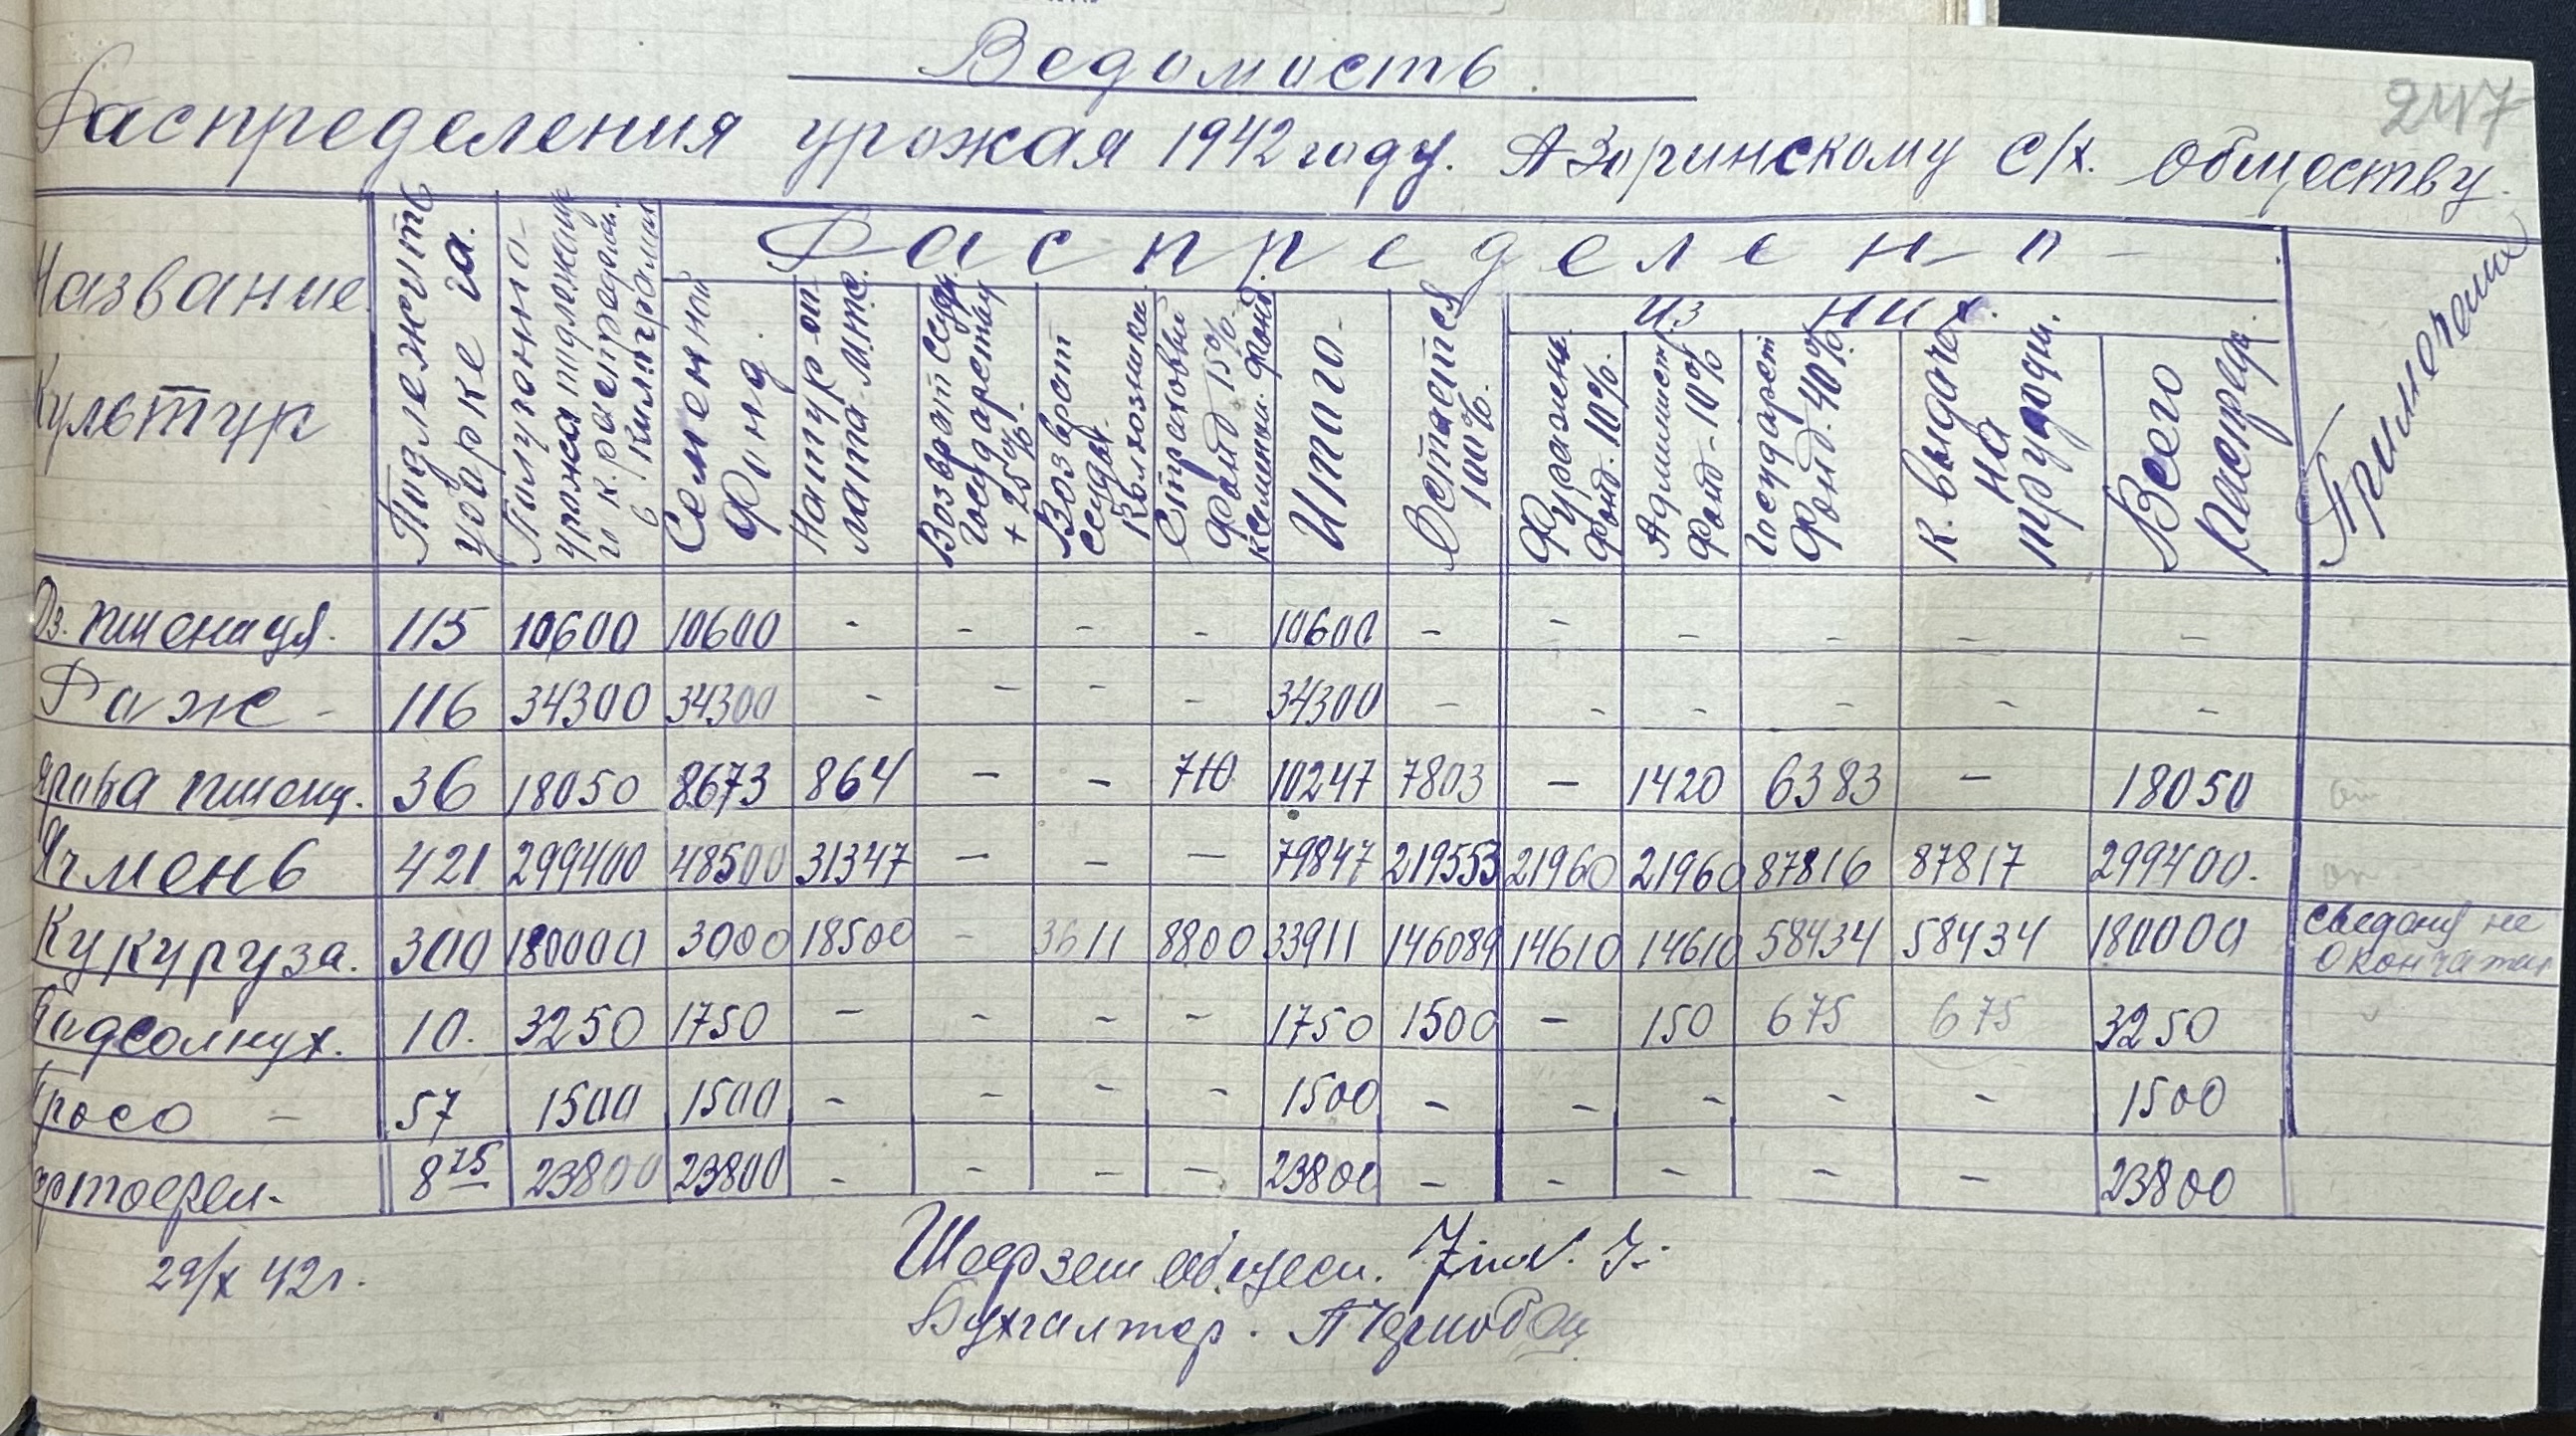 247
Ведомость.
Распределения урожая 1942 году. Азоринскому с/х. обществу.
Название Культур
Подлежить уборке га.
Получено урожа подлежащи и к. распредел. в килаграмах
Семенной Фонд.
Р а с п р е д е л е н о -
Натуроплата М.Т.С.
Возврат ссуды Государству + 25%
Возврат ссуды Колхозники
Страховый Фонд 15% к семенн. Фонд.
Итого -
Остается 100%.
из них.
Фуражн. Фонд. 10%.
Админист. Фонд - 10%
Государст Фонд. 40%
К. выдаче на трудодн.
Всего распред.
Примечение
Оз. пшеница. 115 10600 10600 - - - - 10600 - - - - - -
Раж - 116 34300 34300 - - - - 34300 - - - - - -
Ярова пшениц. 36 18050 8673 864 - - 710 10247 7803 - 1420 6383 - 18050
Ячмень 421 299400 48500 31347 - - - 79847 219553 21960 21960 87816 87817 299400.
Кукуруза. 300 180000 3000 18500 - 3611 8800 33911 146089 14610 14610 58434 58434 180000 сведения не
Подсолнух. 10. 3250 1750 - - - - 1750 1500 - 150 675 675 3250
Просо - 57 1500 1500 - - - - 1500 - - - - - 1500
артофел- 8 75 23800 23800 - - - - 23800 - - - - - 23800
29/X 42г.
Бухгалтер.